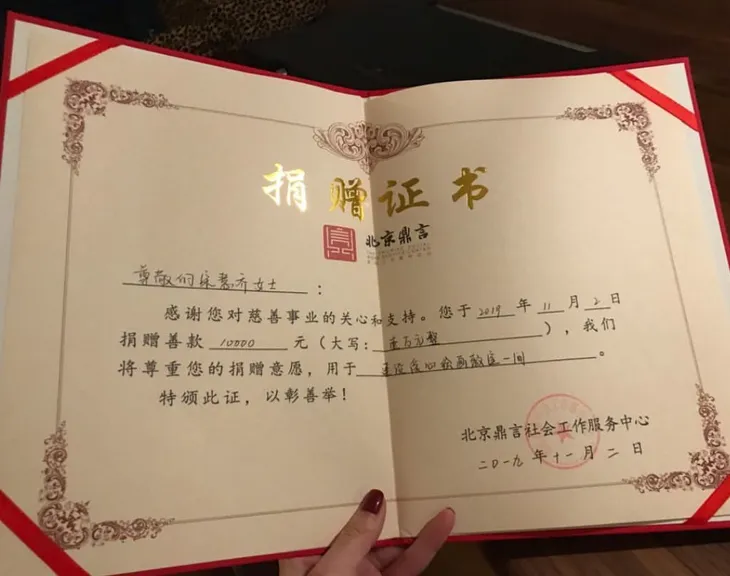 捐赠证书
北京鼎言
尊敬的徐慧齐女士:
感谢您对慈善事业的关心和支持。您于2019年11月2日
捐赠善款10000元(大写:壹万元整),我们
将尊重您的捐赠意愿,用于爱心绘画教室一间。
特颁此证,以彰善举!
北京鼎言社会工作服务中心
二〇一九年十一月二日